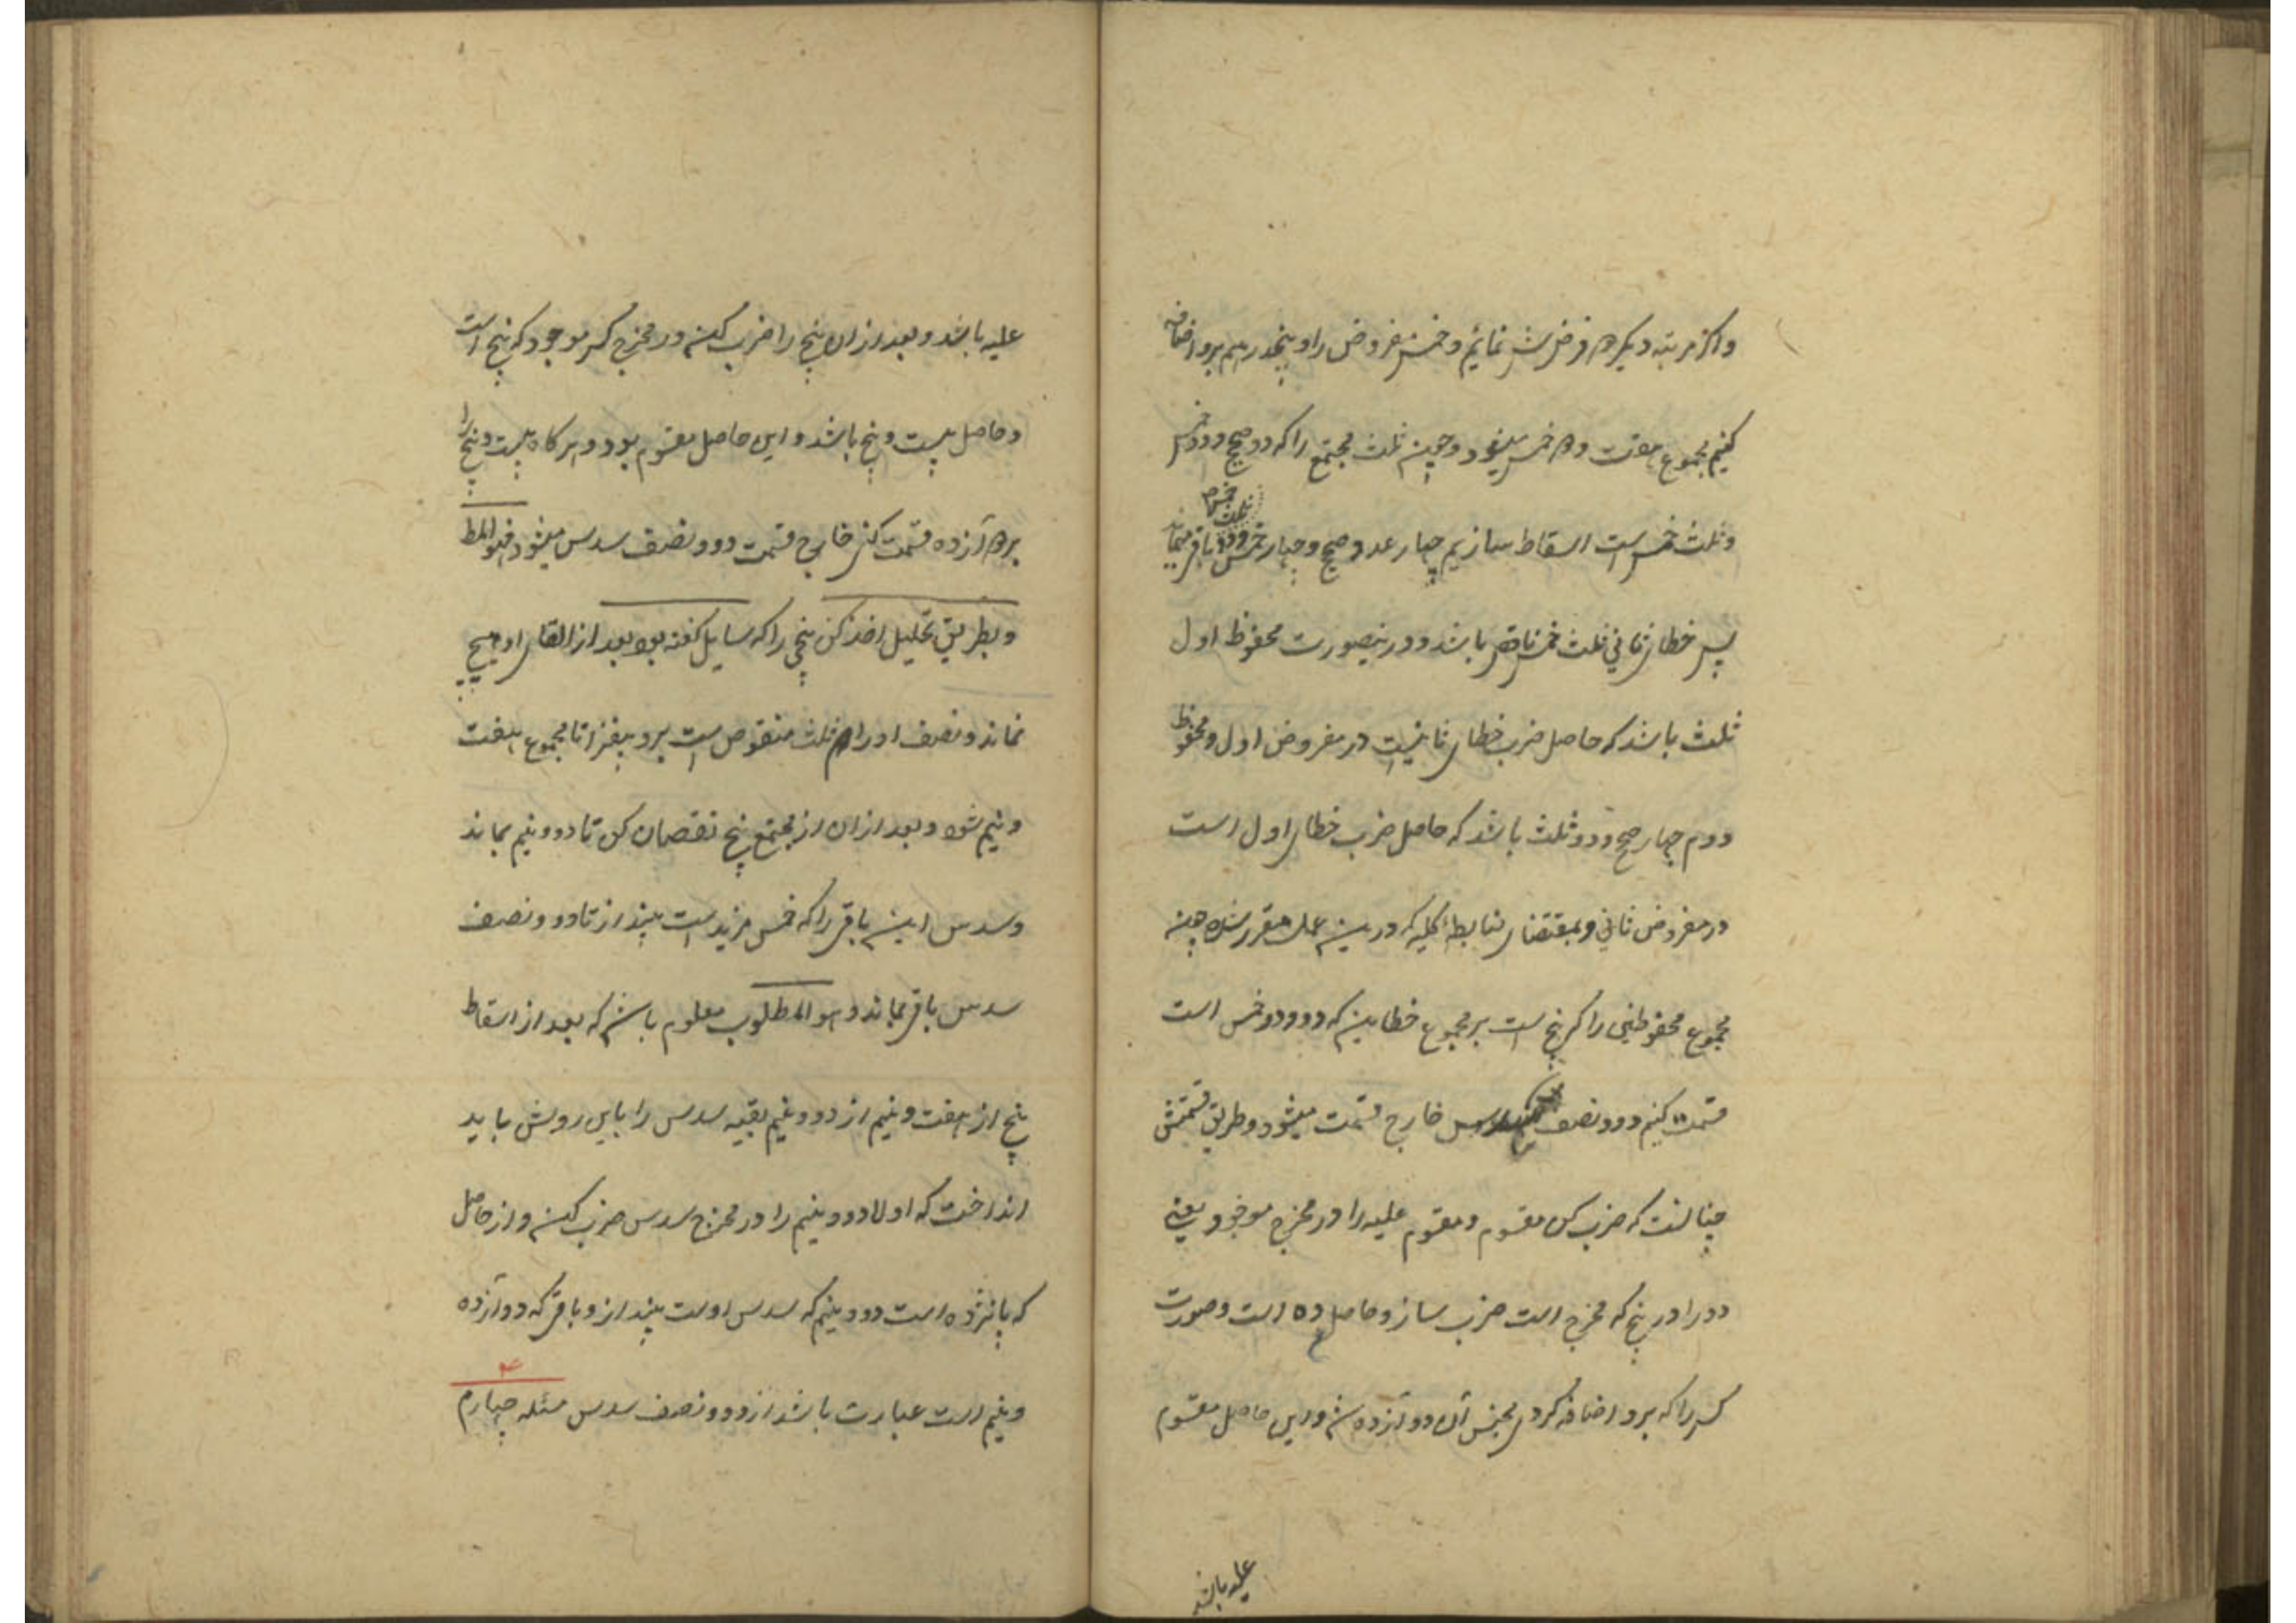 واکر مرتبه دیکر دو فرض نمائیم و خمس مفروض را و پنجدرهم برو اضافه
کنیم مجموع هفت و دو خمس میشود و چون ثلث مجتمع را که دو صحیح و دو خمس
و ثلث خمس است اسقاط سازیم چهار عدد صحیح و چهار خمس و دو ثلث خمس باقی میماند
پس خطای ثانی ثلث خمس ناقص باشد و درینصورت محفوظ اول
ثلث باشد که حاصل ضرب خطای ثانیست در مفروض اول و محفوظ
دوم چهار صحیح و دو ثلث باشد که حاصل ضرب خطای اول است
در مفروض ثانی و بمقتضای ضابطه کلیه که درین عمل مقرر شده چون
مجموع محفوظین را که پنج است بر مجموع خطاین که دو و دو خمس است
قسمت کنیم دو و نصف سدس خارج قسمت میشود و طریق قسمتش
چنانست که ضرب کن مقسوم و مقسوم علیه را در مخرج موجود یعنی
دو را در پنج که مخرج است ضرب ساز و حاصل ده است و صورت
کسر را که برو اضافه کردی مجنس آن دوآزده شد و این حاصل مقسوم
علیه باشد
علیه باشد و بعد ازان پنج را ضرب کن در مخرج کسر موجود که پنج است
و حاصل بیست و پنج باشد و این حاصل مقسوم بود و هر کاه بیست و پنج را
بر دوآزده قسمت کنی خارج قسمت دو و نصف سدس میشود فهو المط
و بطریق تحلیل اخذ کن پنجی را که سایل کفته بود بعد از القای او هیچ
نماند و نصف او را که ثلث منقوص است برو بیفزا تا مجموع هفت
و نیم شود و بعد ازان از مجتمع پنج نقصان کن تا دو و نیم بماند
و سدس این باقی را که خمس مزید است بینداز تا دو و نصف
سدس باقی بماند و هو المطلوب معلوم باشد که بعد از اسقاط
پنج از هفت و نیم از دو و نیم بقیه سدس را باین روش باید
انداخت که اولا دو و نیم را در مخرج سدس ضرب کن و از حاصل
که پانزده است دو و نیم که سدس اوست بینداز و باقی که دوآزده
و نیم است عبارت باشد از دو و نصف سدس مسئله چهارم